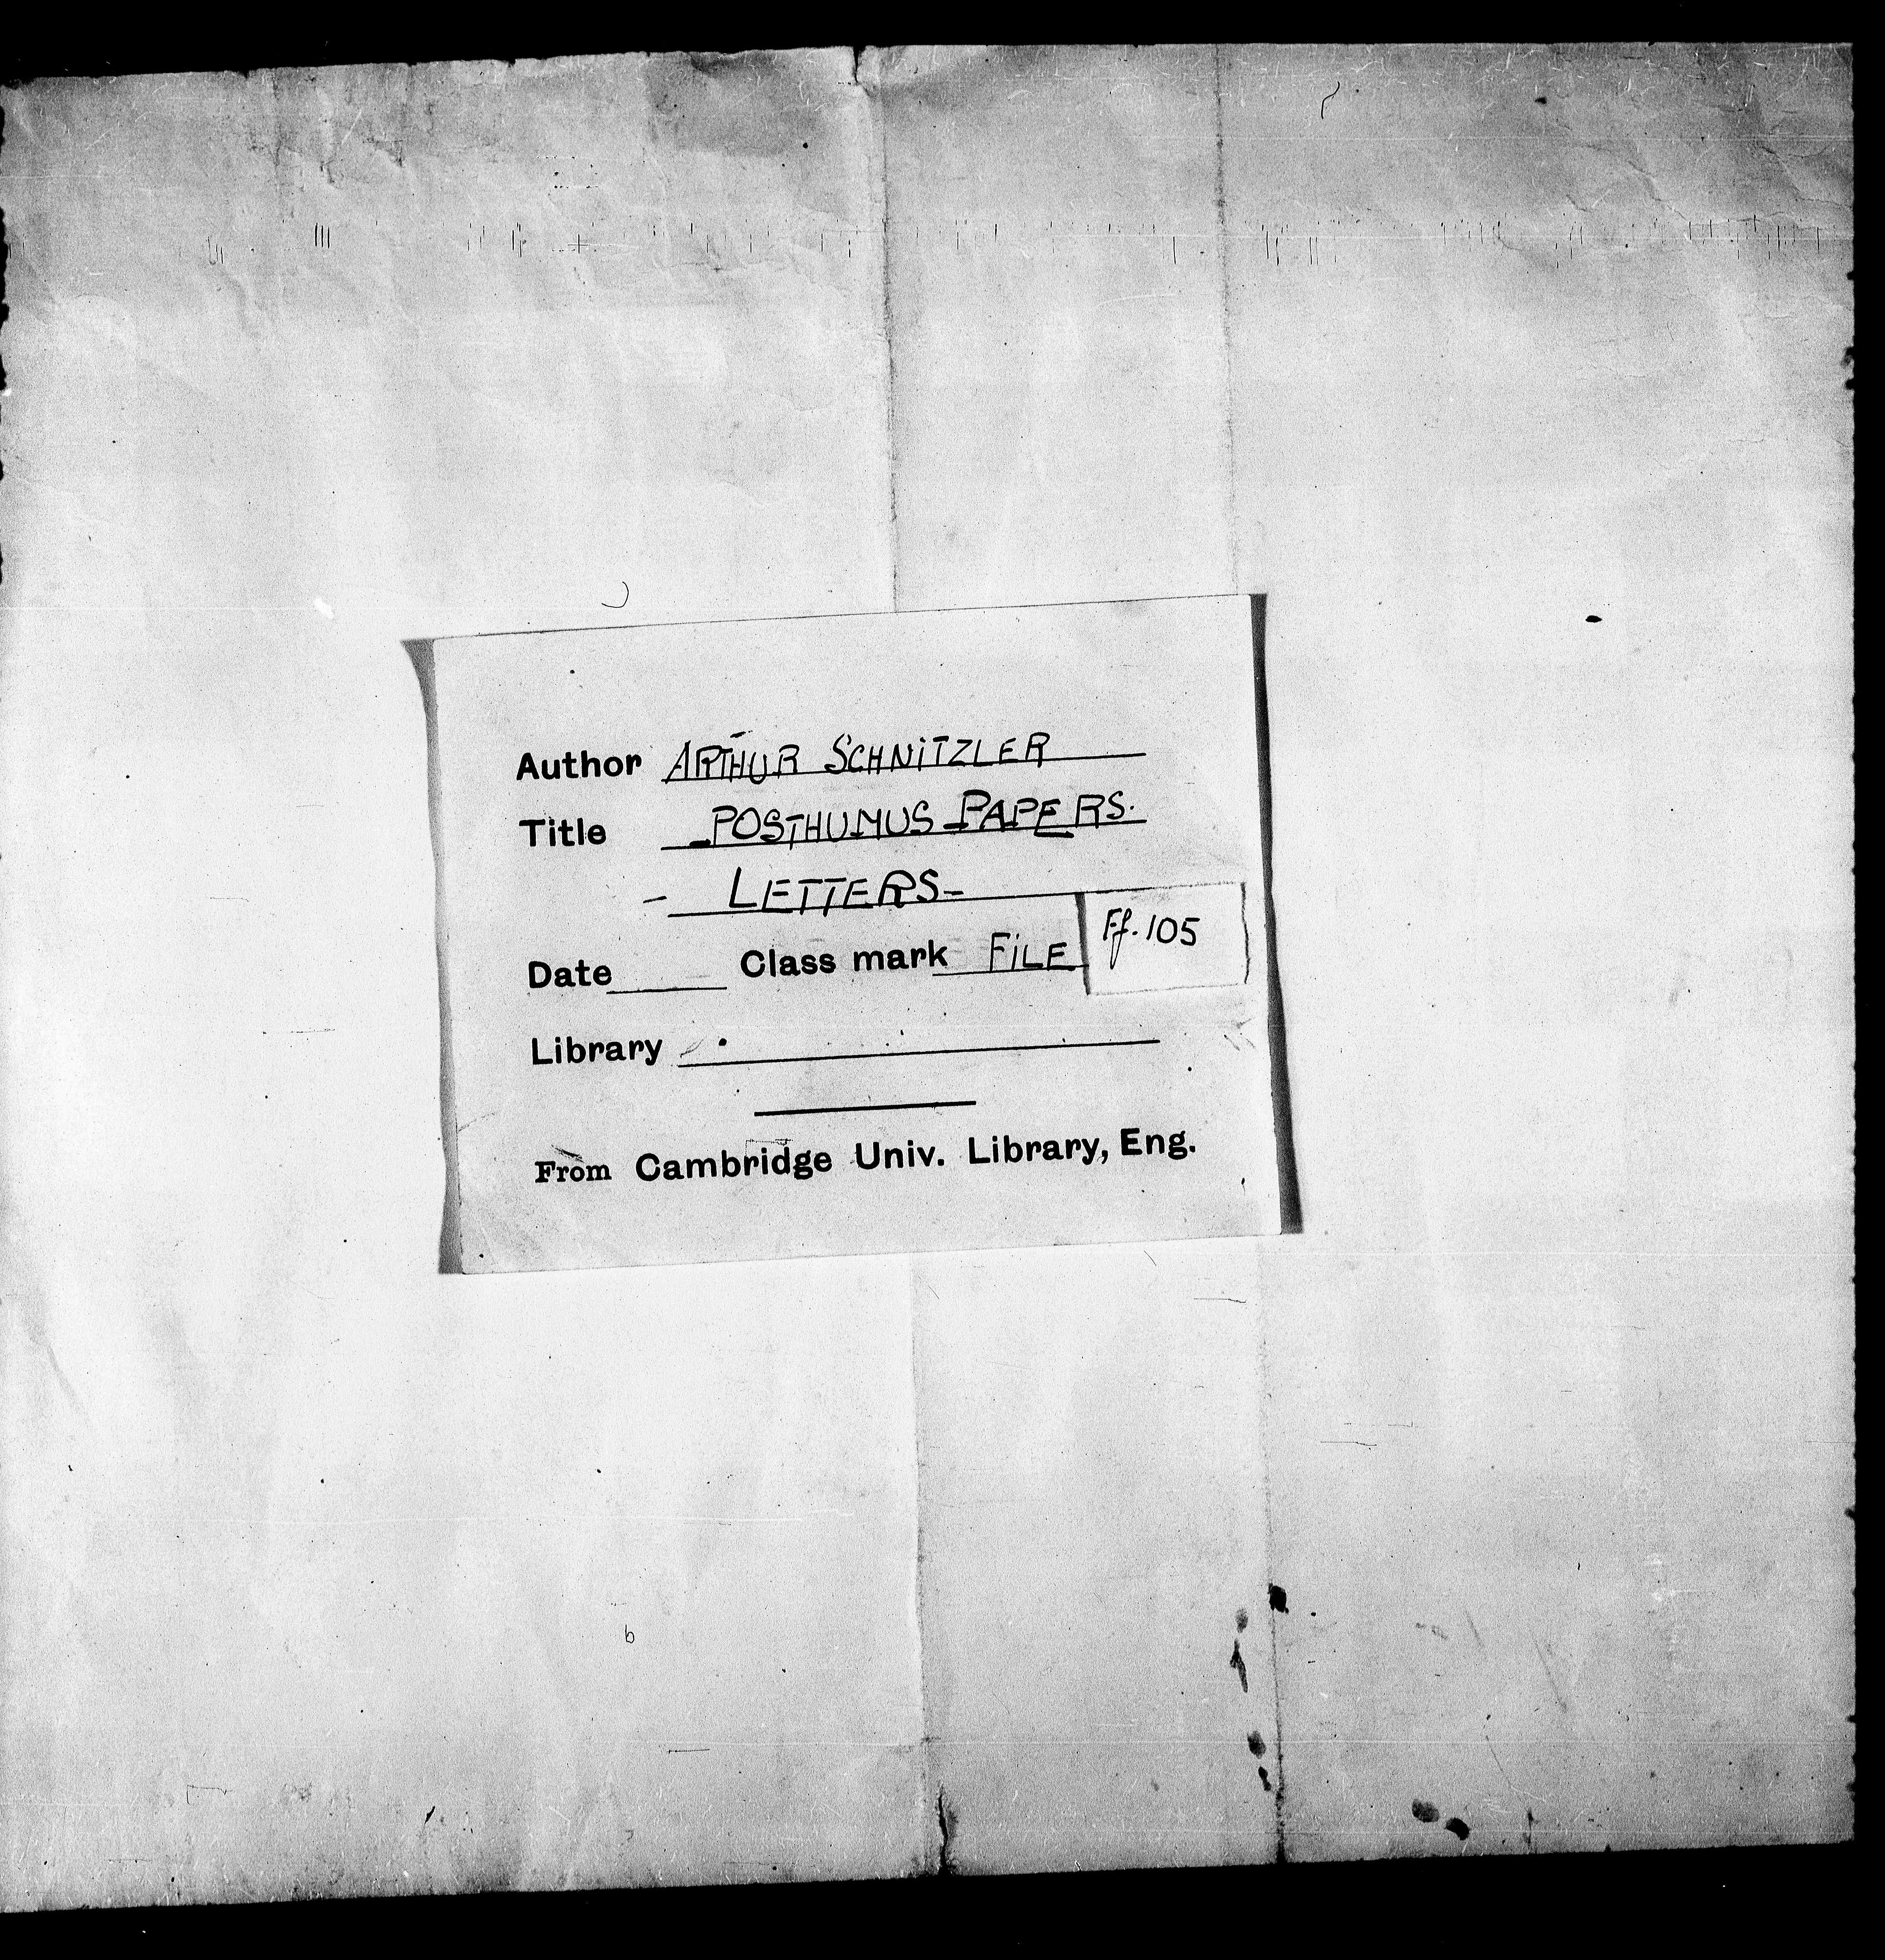 Author ARTHUR SCHNITZLER
Title POSTHUMUS PAPERS.
- LETTERS-
Date Class mark FILE Ff. 105
Library
From Cambridge Univ. Library, Eng.